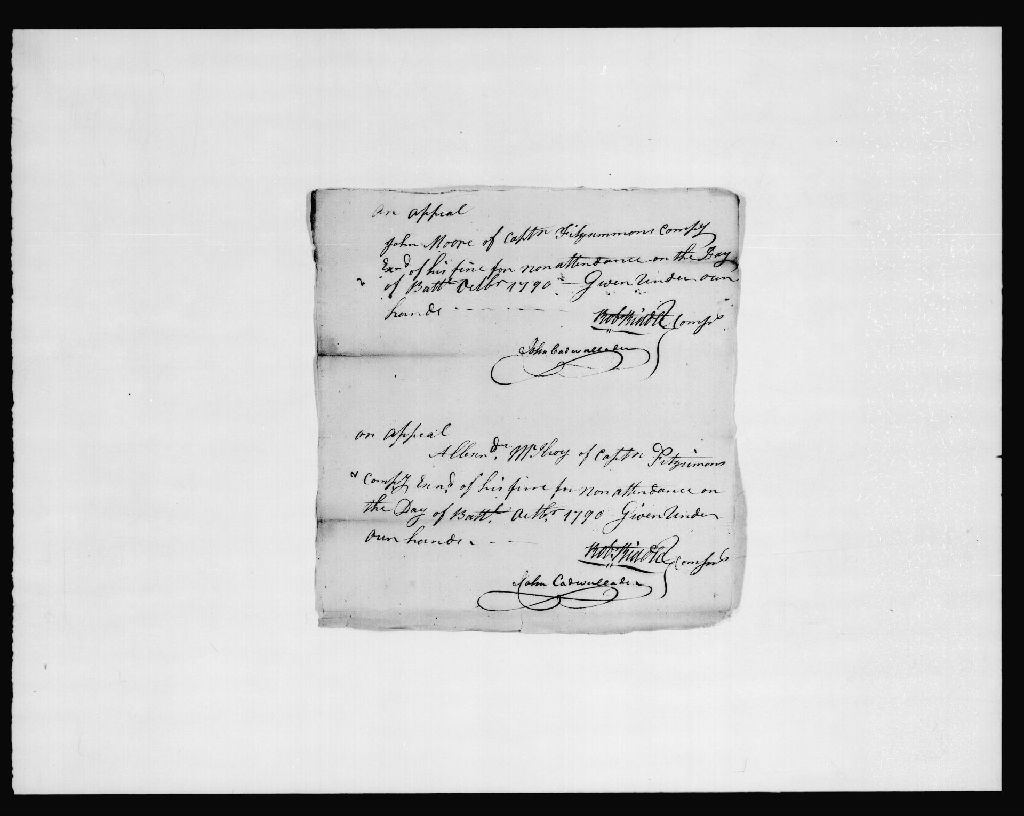 an appeal
John Moore of Captn Fitzsimmons Compy
Exnd of his fine for nonattendance on the Day
of Battl Octbr 1790 - Given Under our
hands - - - - -
Comsr
John Cadwallader
an appeal
Allexndr McIlroy of Captn Fitzsimons
Compy Exnd of his fine for non attendance on
the Day of Battl Octbr 1790 Given Under
our hands - - -
Comsrs
John Cadwallader